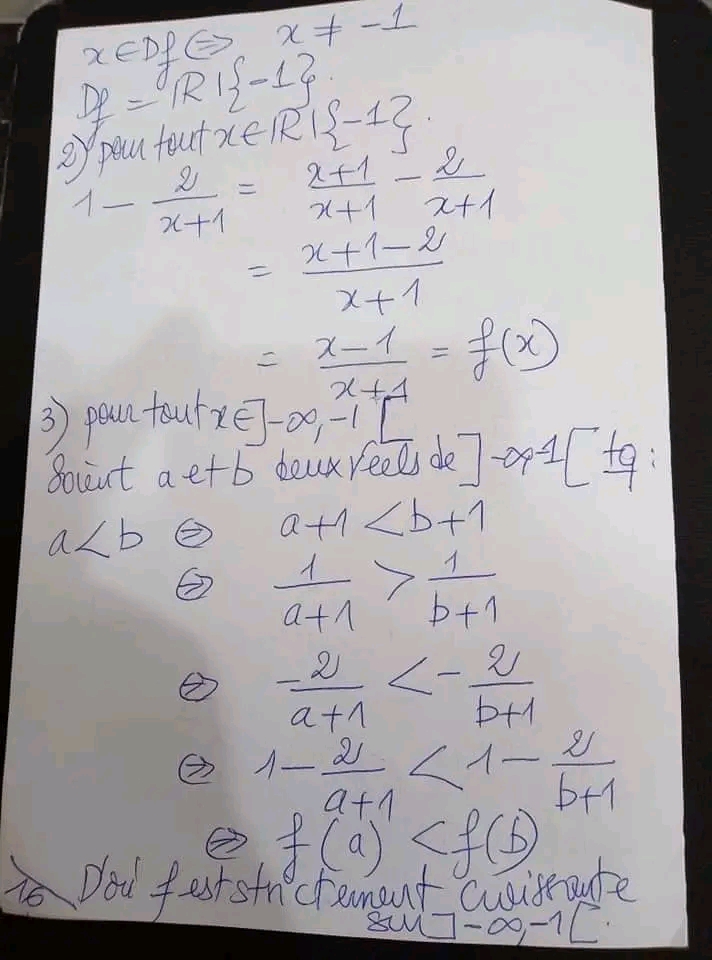 x ∈ Df ⇔ x ≠ -1
Df = ℝ \ {-1}.
2) pour tout x ∈ ℝ \ {-1}.
1 - 2/(x+1) = (x+1)/(x+1) - 2/(x+1)
= (x+1-2)/(x+1)
= (x-1)/(x+1) = f(x)
3) pour tout x ∈ ]-∞, -1[
Soient a et b deux réels de ]-∞,-1[ tq :
a < b ⇔ a+1 < b+1
⇔ 1/(a+1) > 1/(b+1)
⇔ -2/(a+1) < -2/(b+1)
⇔ 1 - 2/(a+1) < 1 - 2/(b+1)
⇔ f(a) < f(b)
16 D'où f est strictement croissante
sur ]-∞,-1[.